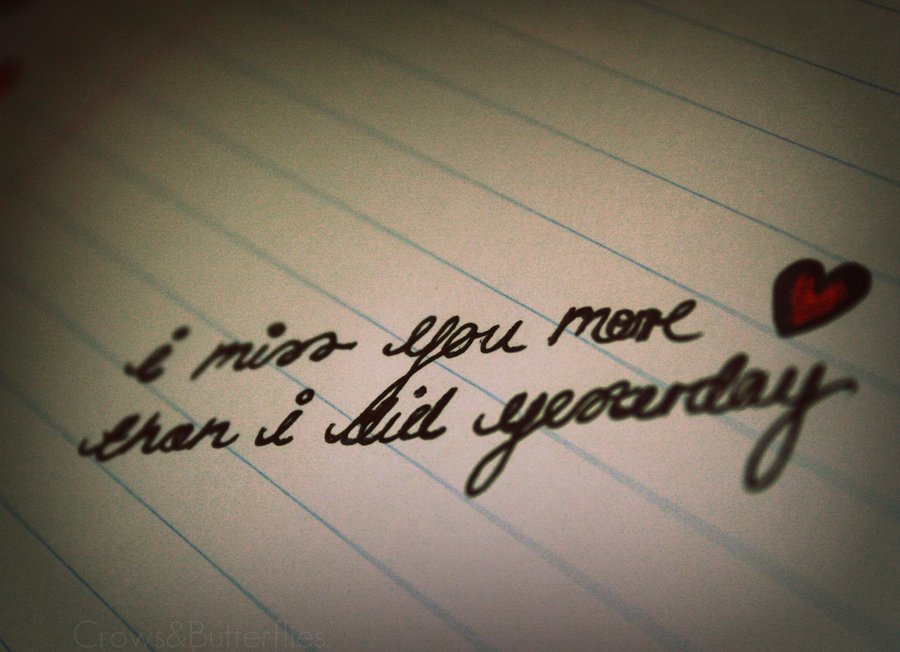 i miss you more
than i did yesterday
Crows&Butterflies